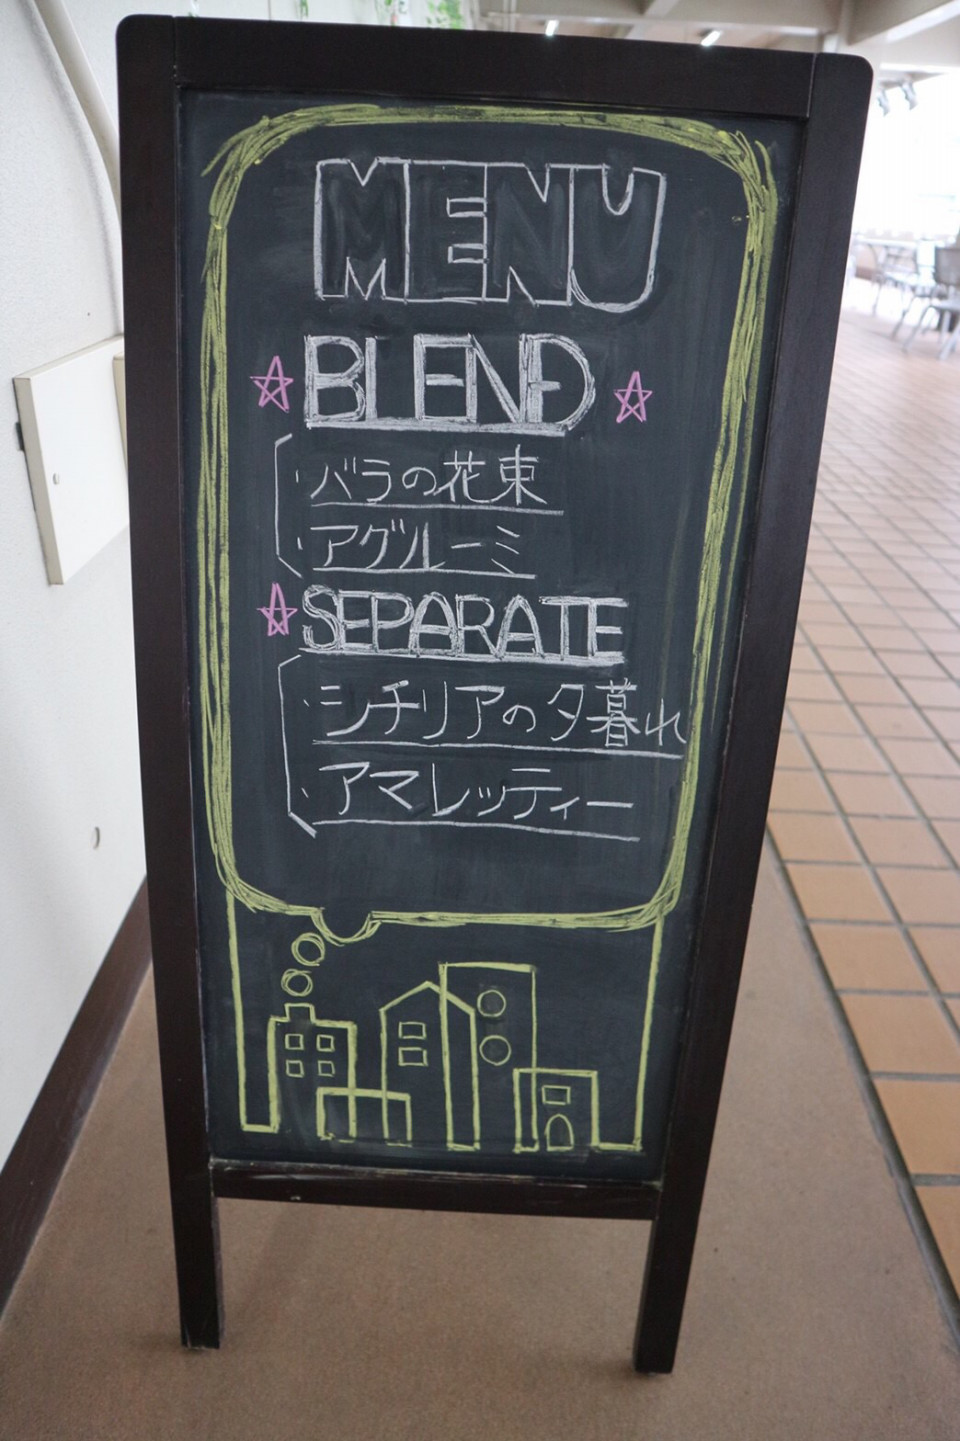 MENU
BLEND
・バラの花束
・アグルーミ
SEPARATE
・シチリアの夕暮れ
・アマレッティー